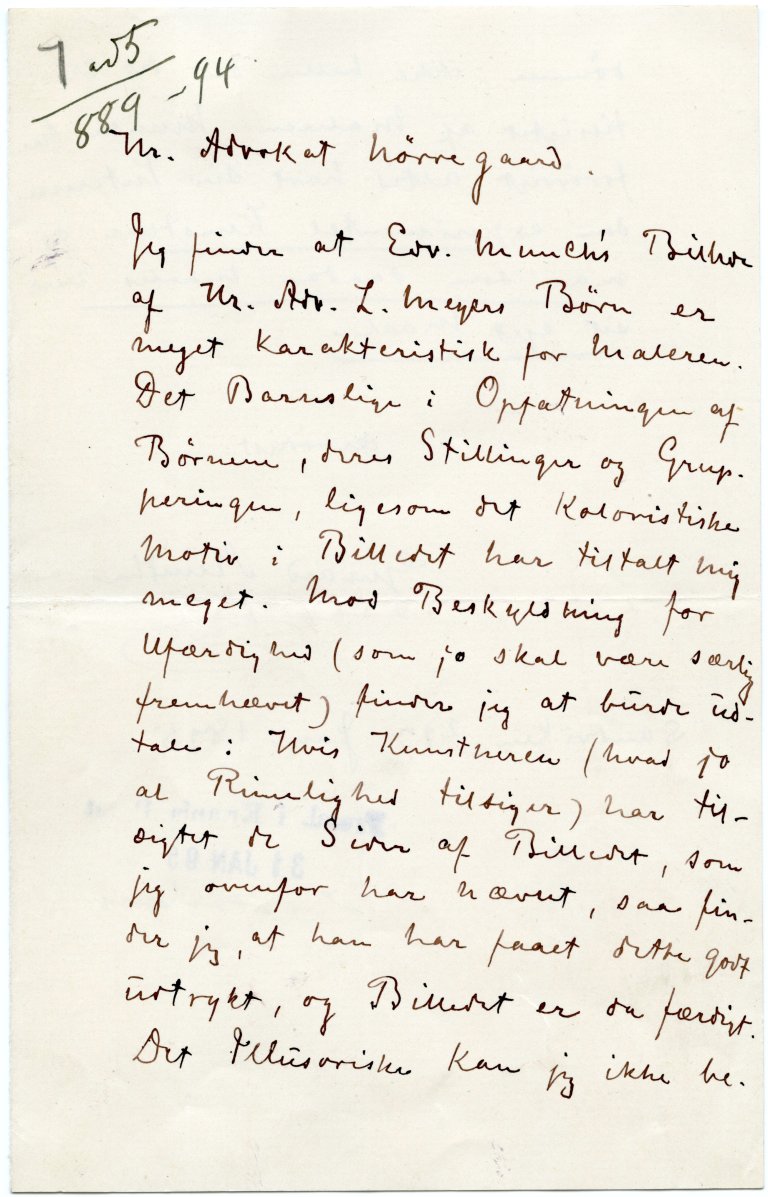 9 ad 5
889 - 94.
Hr. Advokat Nörregaard.
Jeg finder at Edv. Munch's Billede
af Hr. Adv. L. Meyers Börn er
meget karakteristisk for Maleren.
Det Barnslige i Opfatningen af
Börnene, deres Stillinger og Grup-
peringen, ligesom det Koloristiske
Motiv i Billedet har tiltalt mig
meget. Mod Beskyldning for
Ufærdighed (som jo skal være særlig
fremhævet) finder jeg at burde ud-
tale: Hvis Kunstneren (hvad jo
al Rimelighed tilsiger) har til-
sigtet de Sider af Billedet, som
jeg ovenfor har nævnt, saa fin-
der jeg, at han har faaet dette godt
udtrykt, og Billedet er da færdigt.
Det Illusoriske kan jeg ikke be-